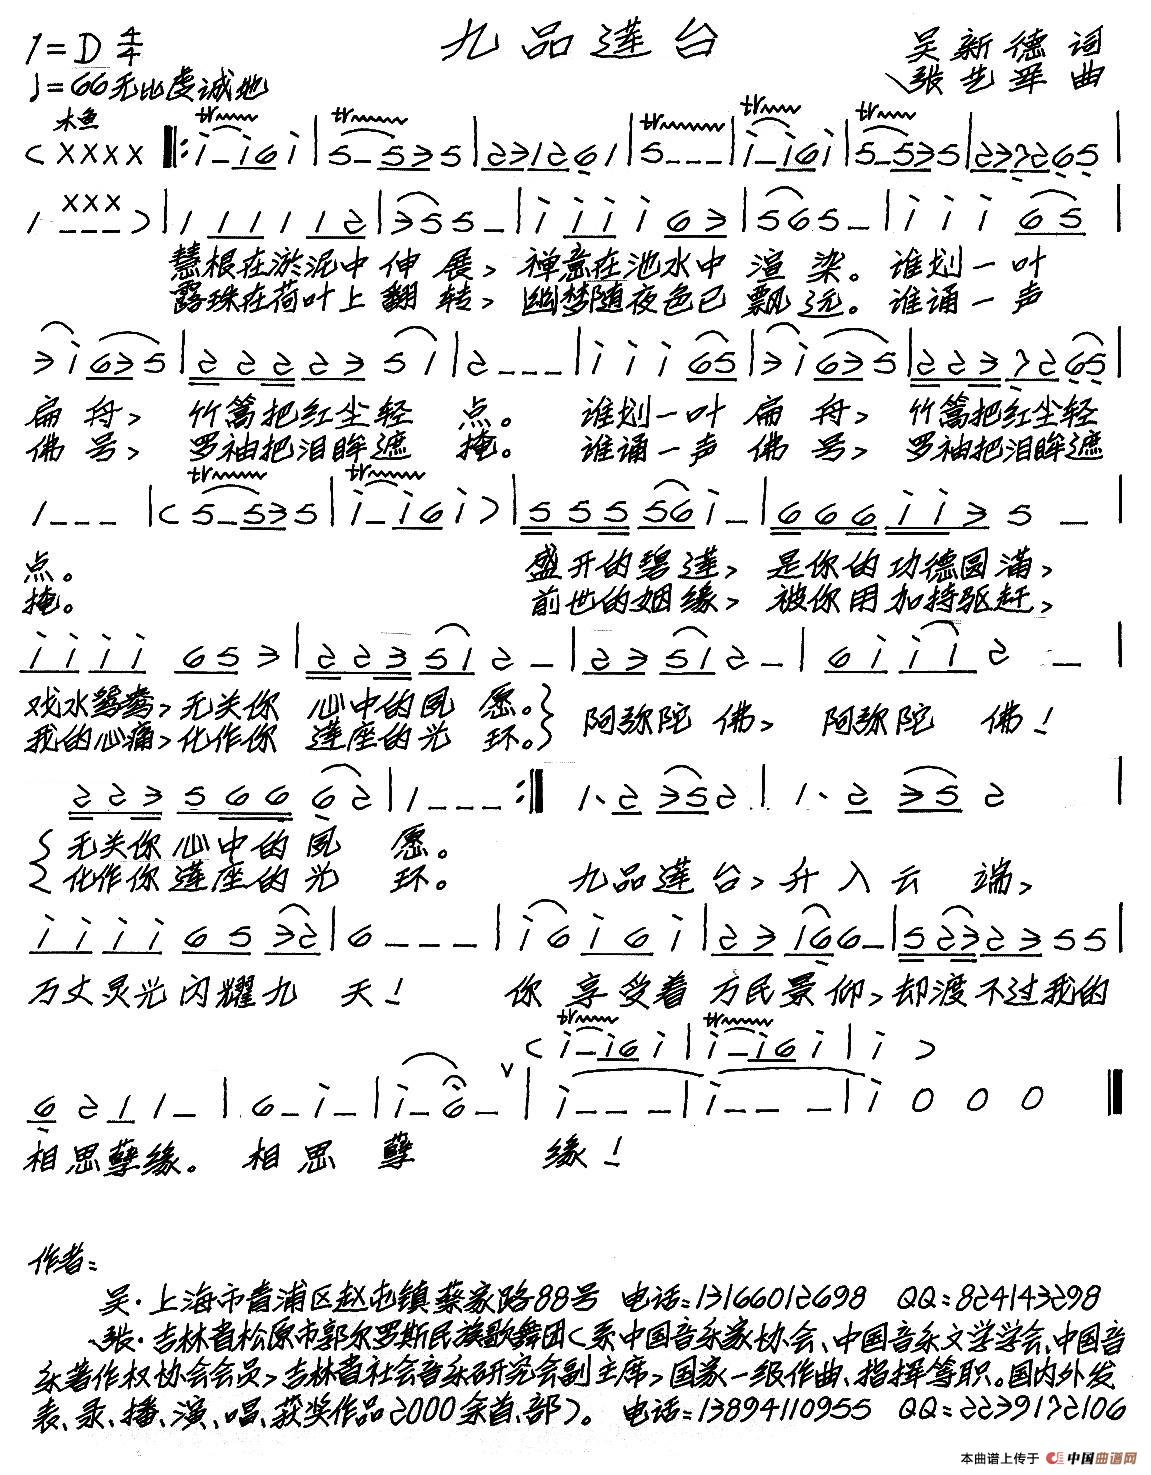 九品莲台
1=D 4/4
吴新德 词
♩=66 无比虔诚地
张艺军 曲
木鱼
慧根在淤泥中伸展，禅意在池水中渲染。谁划一叶
露珠在荷叶上翻转，幽梦随夜色已飘远。谁诵一声
扁舟，竹篙把红尘轻点。谁划一叶扁舟，竹篙把红尘轻
佛号，罗袖把泪眸遮掩。谁诵一声佛号，罗袖把泪眸遮
点。盛开的碧莲，是你的功德圆满，
掩。前世的姻缘，被你用加持驱赶，
戏水鸳鸯，无关你心中的夙愿。
我的心痛，化作你莲座的光环。
阿弥陀佛，阿弥陀佛！
无关你心中的夙愿。
化作你莲座的光环。 九品莲台，升入云端，
万丈灵光闪耀九天！ 你享受着万民景仰，却渡不过我的
相思孽缘。相思孽缘！
作者：
吴·上海市青浦区赵屯镇蔡家路88号 电话：13166012698 QQ：824143298
张·吉林省松原市郭尔罗斯民族歌舞团（系中国音乐家协会、中国音乐文学学会、中国音
乐著作权协会会员，吉林省社会音乐研究会副主席，国家一级作曲、指挥等职。国内外发
表、录、播、演、唱、获奖作品2000余首、部）。 电话：13894110955 QQ：2239172106
本曲谱上传于 中国曲谱网